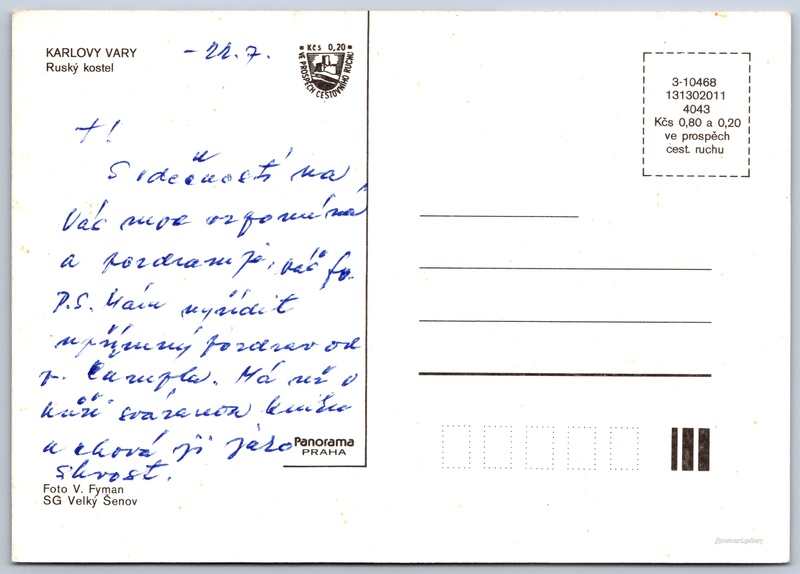 KARLOVY VARY
Ruský kostel
-22.7.
Kčs 0,20
VE PROSPĚCH CESTOVNÍHO RUCHU
3-10468
131302011
4043
Kčs 0,80 a 0,20
ve prospěch
cest. ruchu
+!
S vděčností na
Vás moc vzpomíná
a pozdravuje, váš
P.S. Mám vyřídit
upřímný pozdrav od
p. Má už v
kůži svázanou knihu
a chová ji jako
skvost.
Panorama
PRAHA
Foto V. Fyman
SG Velký Šenov